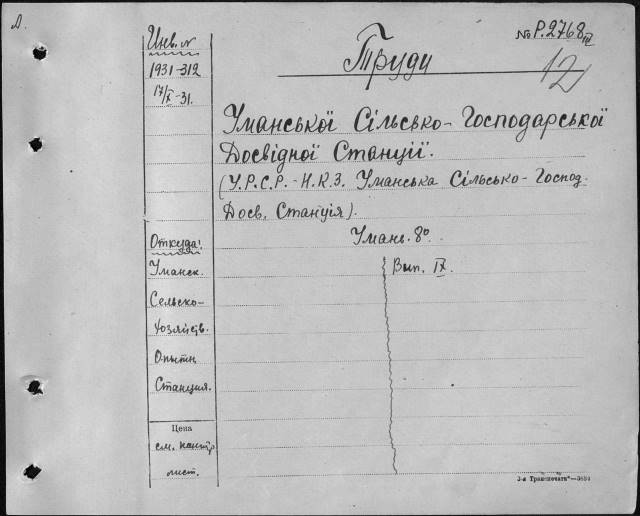 Д.
Инв. №
1931-312
17/X-31.
№ Р.2768 IV
Труди
12
Уманської Сільсько-Господарської
Досвідної Станції.
(У.Р.С.Р. - Н.К.З. Уманська Сільсько-Господ.
Досв. Станція).
Умань. 8°.
Вип. IX.
Откуда:
Уманск.
Сельско-
хозяйств.
Опытн.
Станция.
Цена
см. контр
лист.